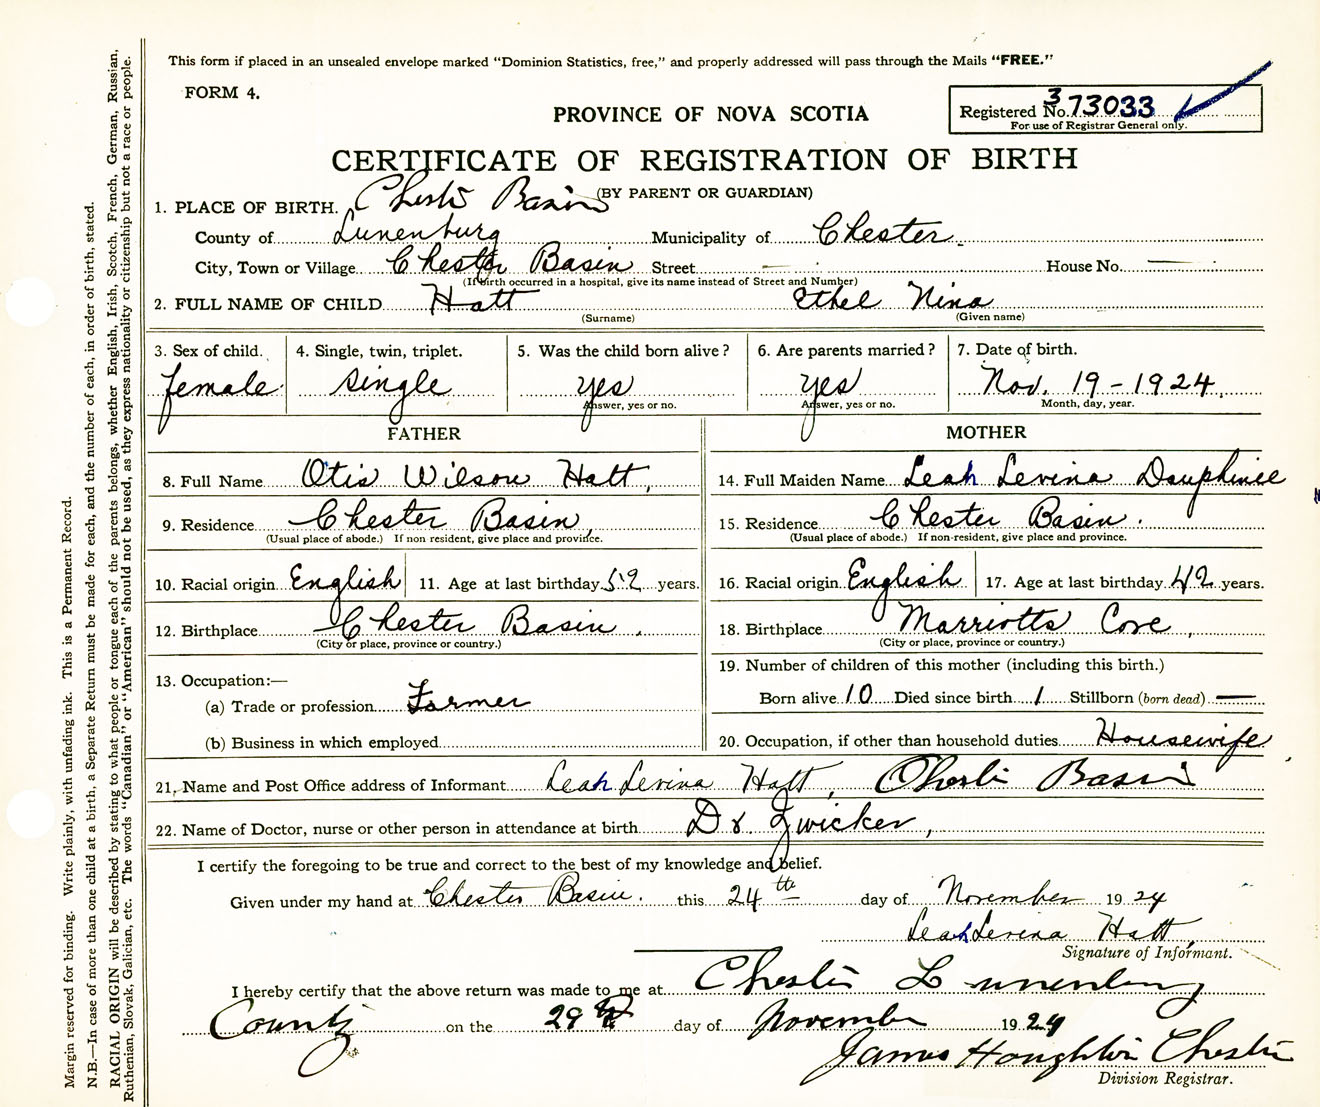 This form if placed in an unsealed envelope marked "Dominion Statistics, free," and properly addressed will pass through the Mails "FREE."
FORM 4.
PROVINCE OF NOVA SCOTIA
Registered No. 373033
For use of Registrar General only.
CERTIFICATE OF REGISTRATION OF BIRTH
(BY PARENT OR GUARDIAN)
1. PLACE OF BIRTH. Chester Basin
County of Lunenburg Municipality of Chester
City, Town or Village Chester Basin Street — House No. —
(If birth occurred in a hospital, give its name instead of Street and Number)
2. FULL NAME OF CHILD Hatt Ethel Nina
(Surname) (Given name)
3. Sex of child. 4. Single, twin, triplet. 5. Was the child born alive? 6. Are parents married? 7. Date of birth.
female single yes yes Nov. 19-1924
Answer, yes or no. Answer, yes or no. Month, day, year.
FATHER MOTHER
8. Full Name Otis Wilson Hatt, 14. Full Maiden Name Leah Levina Dauphinee
9. Residence Chester Basin, 15. Residence Chester Basin.
(Usual place of abode.) If non resident, give place and province. (Usual place of abode.) If non-resident, give place and province.
10. Racial origin English 11. Age at last birthday 52 years. 16. Racial origin English 17. Age at last birthday 42 years.
12. Birthplace Chester Basin, 18. Birthplace Marriotts Cove,
(City or place, province or country.) (City or place, province or country.)
13. Occupation:— 19. Number of children of this mother (including this birth.)
(a) Trade or profession Farmer Born alive 10 Died since birth 1 Stillborn (born dead) —
(b) Business in which employed 20. Occupation, if other than household duties Housewife
21. Name and Post Office address of Informant Leah Levina Hatt, Chester Basin
22. Name of Doctor, nurse or other person in attendance at birth Dr. Zwicker,
I certify the foregoing to be true and correct to the best of my knowledge and belief.
Given under my hand at Chester Basin. this 24th day of November 1924
Leah Levina Hatt
Signature of Informant.
I hereby certify that the above return was made to me at Chester Lunenburg
County on the 29 day of November 1924
James Houghton Chester
Division Registrar.
Margin reserved for binding. Write plainly, with unfading ink. This is a Permanent Record.
N.B.—In case of more than one child at a birth, a Separate Return must be made for each, and the number of each, in order of birth, stated.
RACIAL ORIGIN will be described by stating to what people or tongue each of the parents belongs, whether English, Irish, Scotch, French, German, Russian,
Ruthenian, Slovak, Galician, etc. The words "Canadian" or "American" should not be used, as they express nationality or citizenship but not a race or people.